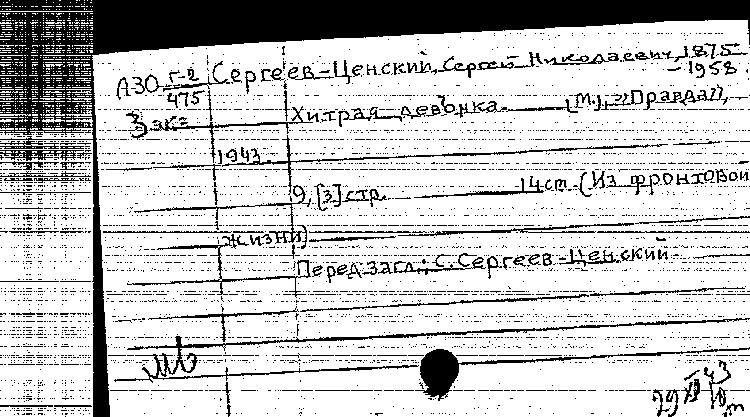 АЗО Г-2/475 Сергеев-Ценский, Сергей Николаевич, 1875-
-1958.
3 экз Хитрая девочка. [М.], "Правда",
1943.
9, [3] стр. 14 см. (Из фронтовой
жизни)
Перед загл.: С. Сергеев-Ценский
29 XII 43